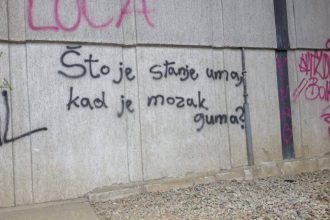 LUCA
Što je stanje uma,
kad je mozak
guma?